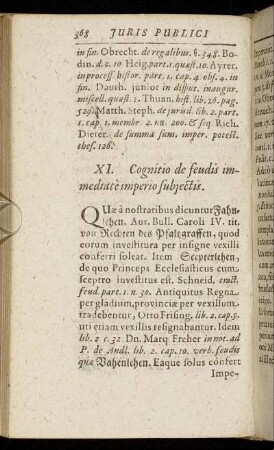 368 JURIS PUBLICI
in fin. Obrecht. de regalibus. §. 348. Bo-
din. d. c. 10 Heig. part. 1. quæst. 10. Ayrer.
in process. histor. part. 1. cap. 4. obs. 4. in
fin. Dauth. junior in disput. inaugur.
miscell. quæst. 1. Thuan. hist. lib. 26. pag.
529. Matth. Steph. de jurisd. lib. 2. part.
1. cap. 1. membr. 2. nu. 200. & seq. Rich.
Dieter. de summa sum. imper. potest.
thes. 126.
XI. Cognitio de feudis im-
mediatè imperio subjectis.
Quæ à nostratibus dicuntur Fahn-
lehen. Aur. Bull. Caroli IV. tit.
von Rechten des Pfaltzgraffen, quod
eorum investitura per insigne vexilli
conferri soleat. Item Scepterlehen,
de quo Princeps Ecclesiasticus cum
sceptro investitus est. Schneid. in rubr.
feud. part. 1. n. 30. Antiquitus Regna
per gladium, provinciæ per vexillum
tradebentur, Otto Frising. lib. 2. cap. 5.
uti etiam vexillis resignabantur. Idem
lib. 2 c. 32. Dn. Marq Freher in not. ad
P. de Andl. lib. 2. cap. 10. verb. feudis
quæ Vahenlehen. Eaque solus confert
Impe-